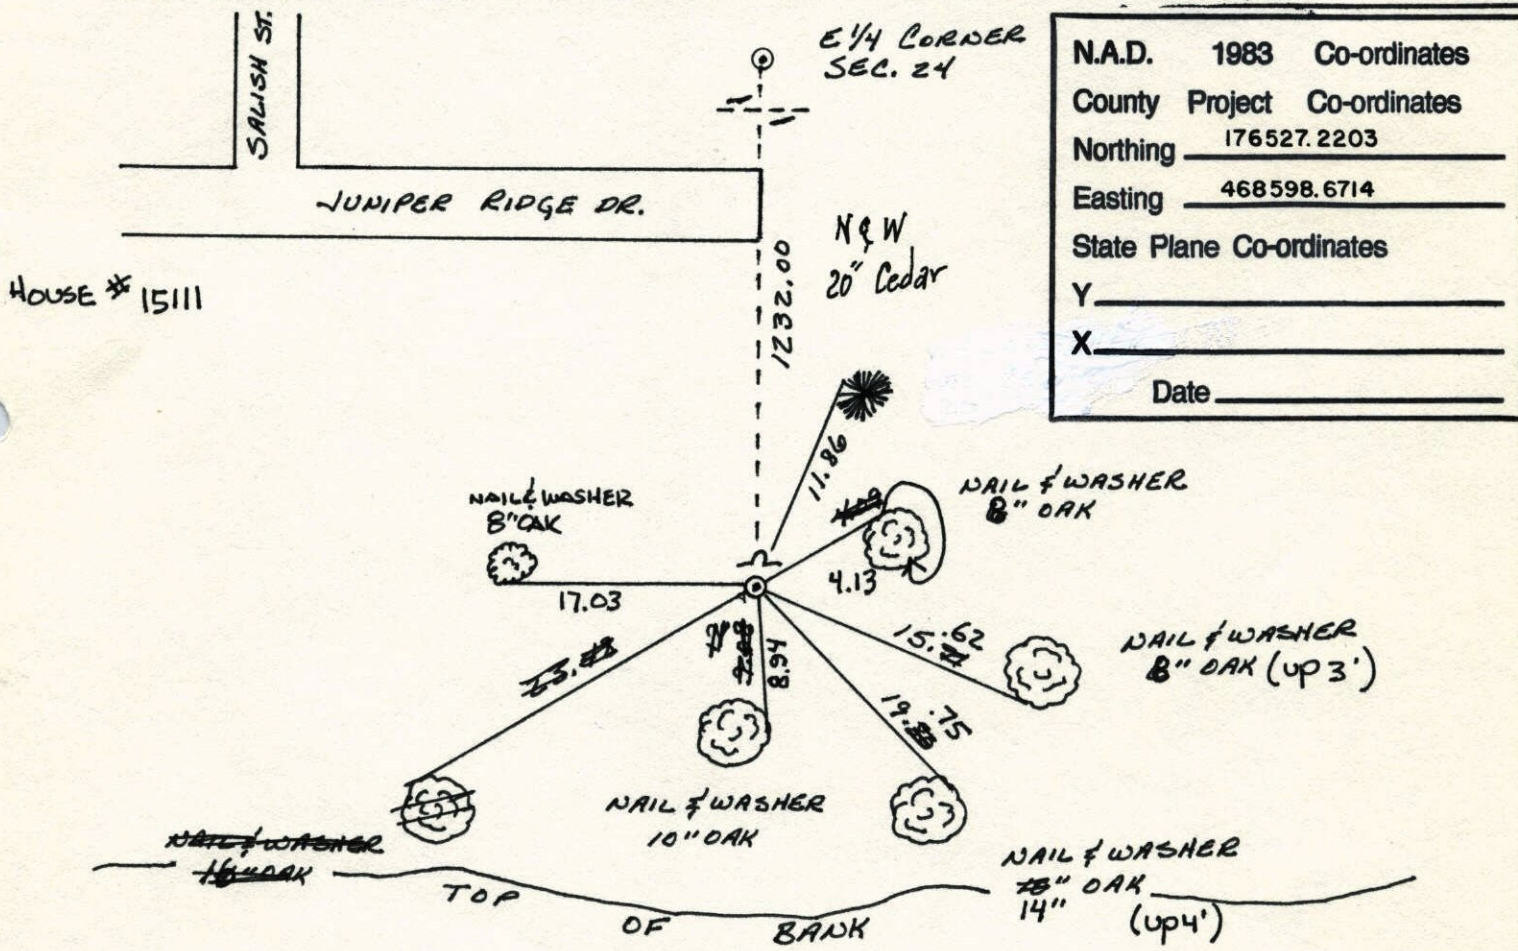 SALISH ST.
E 1/4 CORNER
SEC. 24
N.A.D. 1983 Co-ordinates
County Project Co-ordinates
Northing 176527.2203
Easting 468598.6714
State Plane Co-ordinates
Y
X
Date
JUNIPER RIDGE DR.
HOUSE # 15111
1232.00
N & W
20" Cedar
11.86
NAIL & WASHER
8" OAK
NAIL & WASHER
8" OAK
4.13
17.03
15.62
NAIL & WASHER
8" OAK (up 3')
8.94
19.75
NAIL & WASHER
10" OAK
NAIL & WASHER
16" OAK
NAIL & WASHER
OAK
14"
(up 4')
TOP OF BANK